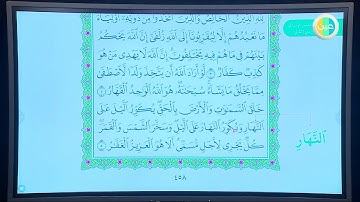 لِلَّهِ ٱلدِّينُ ٱلۡخَالِصُۚ وَٱلَّذِينَ ٱتَّخَذُواْ مِن دُونِهِۦٓ أَوۡلِيَآءَ
مَا نَعۡبُدُهُمۡ إِلَّا لِيُقَرِّبُونَآ إِلَى ٱللَّهِ زُلۡفَىٰٓ إِنَّ ٱللَّهَ يَحۡكُمُ
بَيۡنَهُمۡ فِي مَا هُمۡ فِيهِ يَخۡتَلِفُونَۗ إِنَّ ٱللَّهَ لَا يَهۡدِي مَنۡ هُوَ
كَٰذِبٞ كَفَّارٞ ٣ لَّوۡ أَرَادَ ٱللَّهُ أَن يَتَّخِذَ وَلَدٗا لَّٱصۡطَفَىٰ
مِمَّا يَخۡلُقُ مَا يَشَآءُۚ سُبۡحَٰنَهُۥۖ هُوَ ٱللَّهُ ٱلۡوَٰحِدُ ٱلۡقَهَّارُ ٤
خَلَقَ ٱلسَّمَٰوَٰتِ وَٱلۡأَرۡضَ بِٱلۡحَقِّۖ يُكَوِّرُ ٱلَّيۡلَ عَلَى
ٱلنَّهَارِ وَيُكَوِّرُ ٱلنَّهَارَ عَلَى ٱلَّيۡلِۖ وَسَخَّرَ ٱلشَّمۡسَ وَٱلۡقَمَرَۖ
كُلّٞ يَجۡرِي لِأَجَلٖ مُّسَمًّىۗ أَلَا هُوَ ٱلۡعَزِيزُ ٱلۡغَفَّٰرُ ٥
ٱلنَّهَارِ
٤٥٨